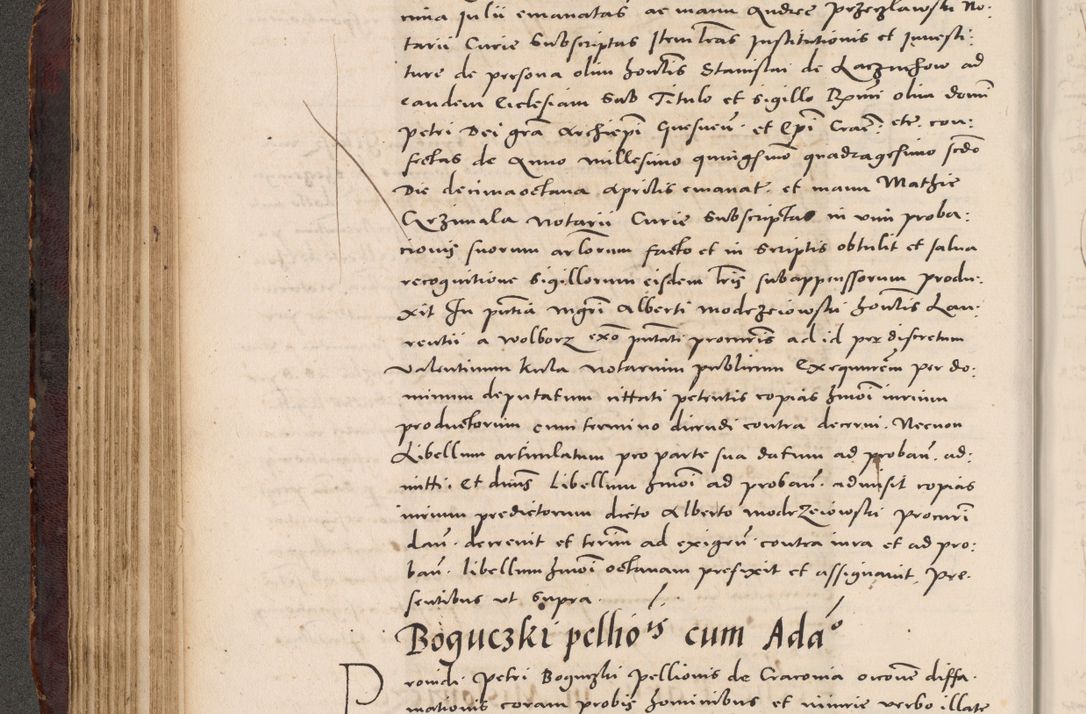 cima Julii emanatas ac manu Andree Przeczlawski No-
tarii Curie Subscriptas Item l̃ras Institutionis et Jnvesti-
ture de persona olim hon̄lis Stanislai de Laczuchow ad
eandem Ecclesiam Sub Titulo et sigillo Rx̄mi olim domi
Petri Dei grā Archiepi Gnesneñ. et Epi Craco: etc. con-
fectas de Anno millesimo quingesimo quadragesimo scdo
Die decimaoctava Aprilis emanat. et manu Mathie
Curie Notarii Subscriptas in vim proba-
cionis suorum ar̃lorum facto et in Scriptis obtulit et salva
recognitione Sigillorum eisdem l̃ris subappenssorum produ-
xit In pñtia mgri Alberti modrzeiowski honl̃is Lau-
rentii a Wolborz exo putati procuris ad id per discretum
Valentinum Kula Notarium publicum Exequurem per do-
minum deputatum cittati petentis copias hmoi iurium
productorum cum termino dicendi contra decerni. Necnon
Libellum articulatum pro parte sua datum ad proban. ad-
mitti. Et dnus Libellum hmoi ad proban. admisit copias
iurium predictorum dicto Alberto modrzeiowski Procuri
dan. decrevit et termi ad exigen. contra iura et ad pro-
ban. libellum hmoi octavam prefixit et assignavit. Pre-
sentibus ut supra.
Boguczki pellio is cum Ada o
Provid. Petri Boguczki Pellionis de Cracovia occone diffa-
mationis coram probis hominibus et nimie verbo illate